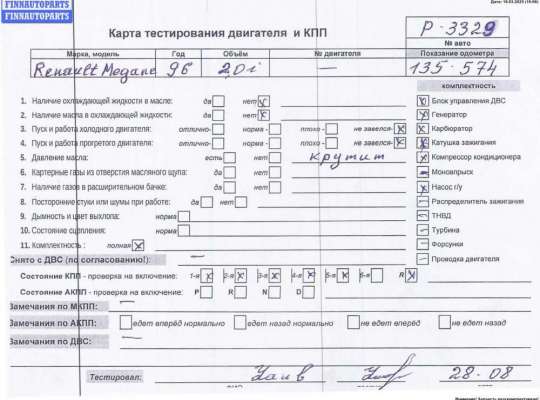 FINNAUTOPARTS
FINNAUTOPARTS
Карта тестирования двигателя и КПП
P-3329
№ авто
Марка, модель Год Объём № двигателя Показание одометра
Renault Megane 96 2,0i — 135-574
комплектность
1. Наличие охлаждающей жидкости в масле: да нет x
2. Наличие масла в охлаждающей жидкости: да нет x
3. Пуск и работа холодного двигателя: отлично- норма - плохо - не завелся- x
4. Пуск и работа прогретого двигателя: отлично- норма - плохо - не завелся- x
5. Давление масла: есть нет крутит
6. Картерные газы из отверстия масляного щупа: да нет
7. Наличие газов в расширительном бачке: да нет
8. Посторонние стуки или шумы при работе: да нет
9. Дымность и цвет выхлопа: норма
10. Состояние сцепления: норма
11. Комплектность : полная x
x Блок управления ДВС
x Генератор
x Карбюратор
x Катушка зажигания
x Компрессор кондиционера
Моновпрыск
x Насос г/у
Распределитель зажигания
ТНВД
Турбина
Форсунки
Проводка двигателя
Снято с ДВС (по согласованию!): —
Состояние КПП - проверка на включение: 1-я x 2-я x 3-я x 4-я x 5-я x R x
Состояние АКПП - проверка на включение: P R N D
Замечания по МКПП: —
Замечания по АКПП: едет вперёд нормально едет назад нормально не едет вперёд не едет назад
Замечания по ДВС: —
Тестировал: 28-08